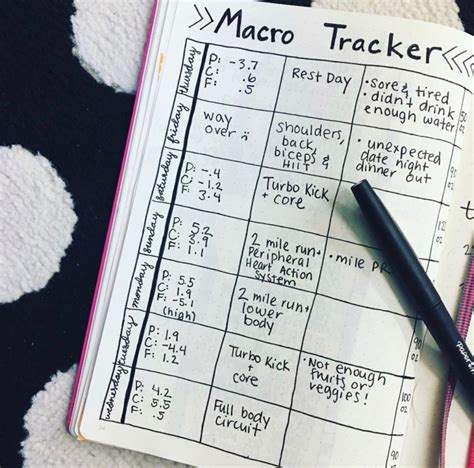 >> Macro Tracker <<<
thursday
P: -3.7
C: .6
F: .5
Rest Day
• sore & tired
• didn't drink
enough water
oz
friday
way
over
shoulders,
back,
biceps &
HIIT
• unexpected
date night
dinner out
saturday
P: -.4
C: -1.2
F: 3.4
Turbo Kick
+
core
oz
sunday
P: 5.2
C: 3.9
F: 1.1
2 mile run+
Peripheral
Heart Action
System
• mile PR
monday
P: 5.5
C: 1.9
F: -5.1
(high)
2 mile run+
lower
body
90
oz
tuesday
P: 1.9
C: -4.4
F: 1.2
Turbo Kick
+
core
• Not enough
fruits or
veggies!
100
oz
wednesday
P: 4.2
C: 5.5
F: .5
Full body
circuit
90